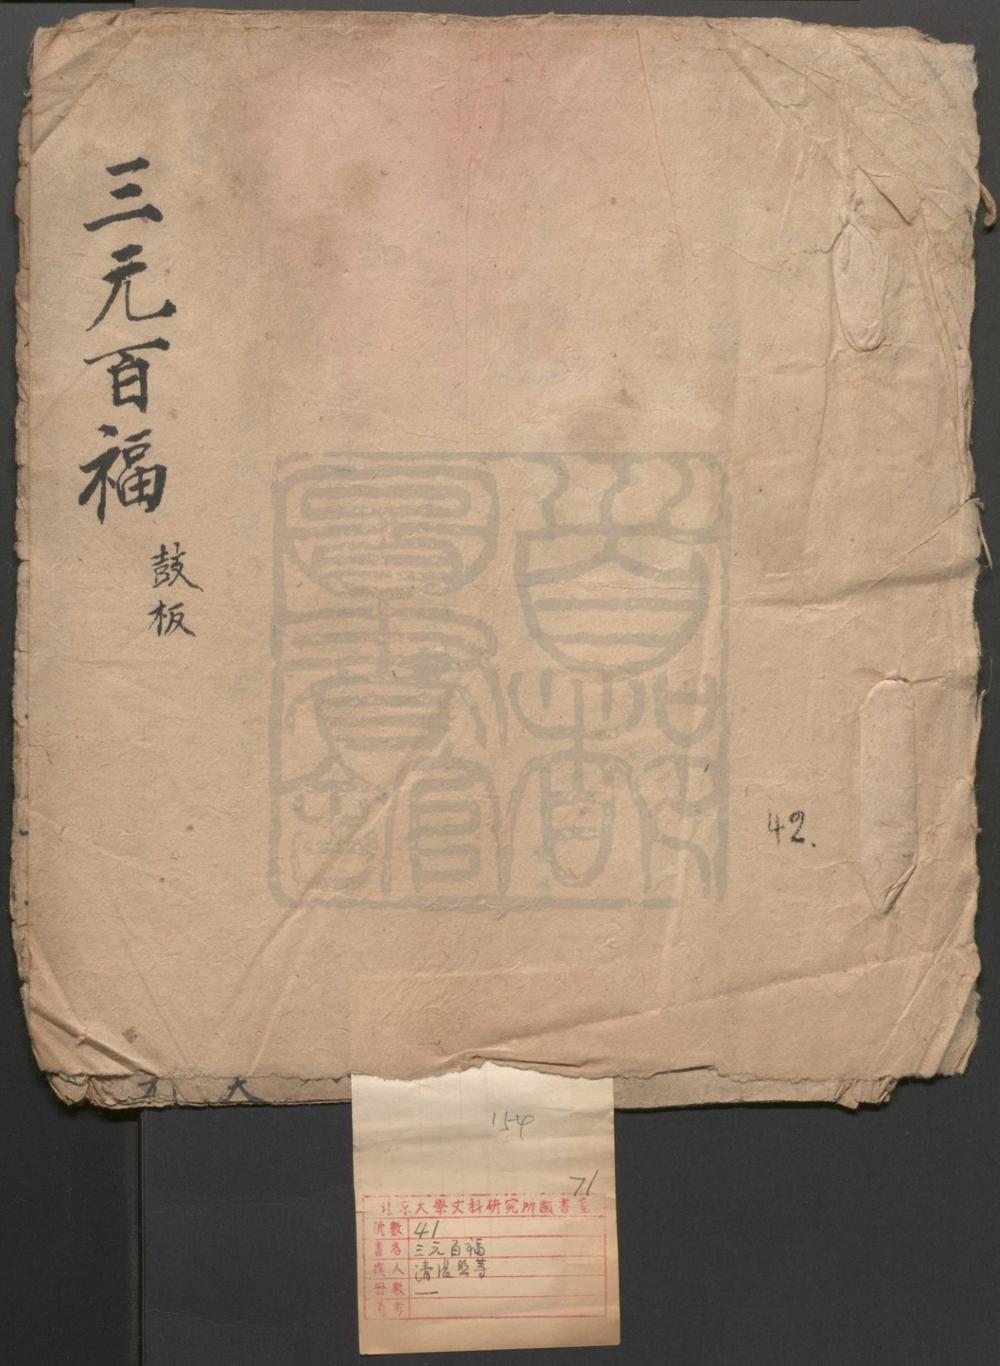 三元百福
鼓板
42.
154
71
北京大學文科研究所圖書室
號數 41
書名 三元百福
撰人 清
冊數 一
首都圖書館